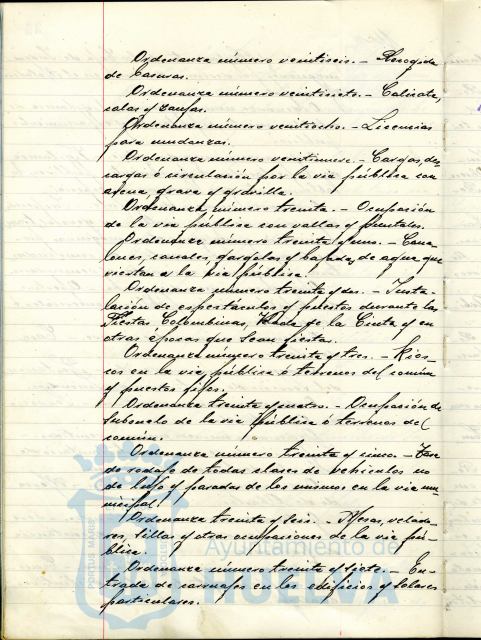 Ordenanza número veintiseis. — Recogida
de basuras.
Ordenanza número veintisiete. — Calicatas,
calas y zanjas.
Ordenanza número veintiocho. — Licencias
para mudanzas.
Ordenanza número veintinueve. — Cargas, des-
cargas ó circulación por la via pública con
arena, grava y gravilla.
Ordenanza número treinta. — Ocupación
de la via pública con vallas y puntales.
Ordenanza número treinta y uno. — Cana-
lones, canales, gargolas y bajadas de agua que
viertan a la via pública.
Ordenanza número treinta y dos. — Insta-
lación de espectáculos y puestos durante las
Fiestas Colombinas, de la Cinta y en
otras épocas que sean fiesta.
Ordenanza número treinta y tres. — Kios-
cos en la via pública ó terrenos del comun
y puestos fijos.
Ordenanza treinta y cuatro. — Ocupación de
subsuelo de la via pública ó terrenos del
comun.
Ordenanza número treinta y cinco. — Tasa
de rodaje de todas clases de vehiculos no
de lujo y paradas de los mismos en la via mu-
nicipal.
Ordenanza treinta y seis. — Mesas, velado-
res, sillas y otras ocupaciones de la via pú-
blica.
Ordenanza número treinta y siete. — En-
trada de carruajes en los edificios y solares
particulares.
PORTUS MARIS
Ayuntamiento de
HUELVA